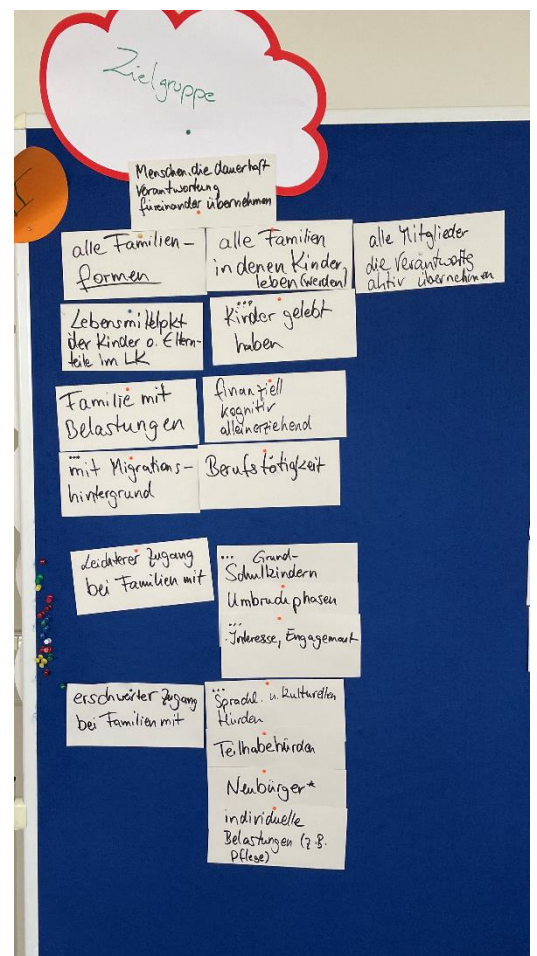 Zielgruppe
Menschen, die dauerhaft
Verantwortung
füreinander übernehmen
alle Familien-
formen
alle Familien
in denen Kinder
leben (werden)
alle Mitglieder
die Verantwortg
aktiv übernehmen
Lebensmittelpkt
der Kinder o. Eltern-
teile im LK
... Kinder gelebt
haben
Familie mit
Belastungen
finanziell
kognitiv
alleinerziehend
... mit Migrations-
hintergrund
Berufstätigkeit
Leichterer Zugang
bei Familien mit
... Grund-
Schulkindern
Umbruchphasen
... Interesse, Engagement
erschwerter Zugang
bei Familien mit
... Sprachl. u. kulturellen
Hürden
Teilhabehürden
Neubürger*
individuelle
Belastungen (z.B.
Pflege)